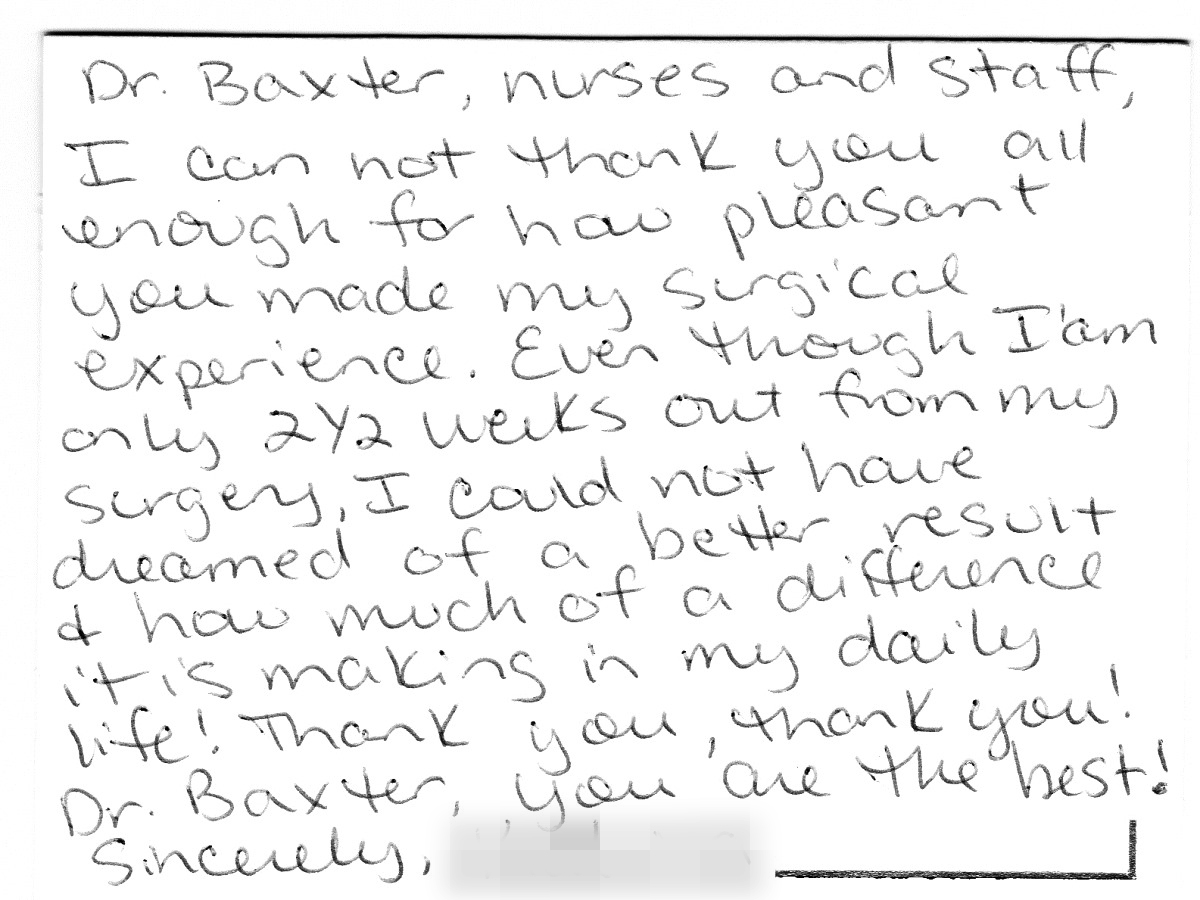 Dr. Baxter, nurses and staff,
I can not thank you all
enough for how pleasant
you made my surgical
experience. Even though I'am
only 2 1/2 weeks out from my
surgery, I could not have
dreamed of a better result
& how much of a difference
it is making in my daily
life! Thank you, thank you!
Dr. Baxter, you are the best!
Sincerely,